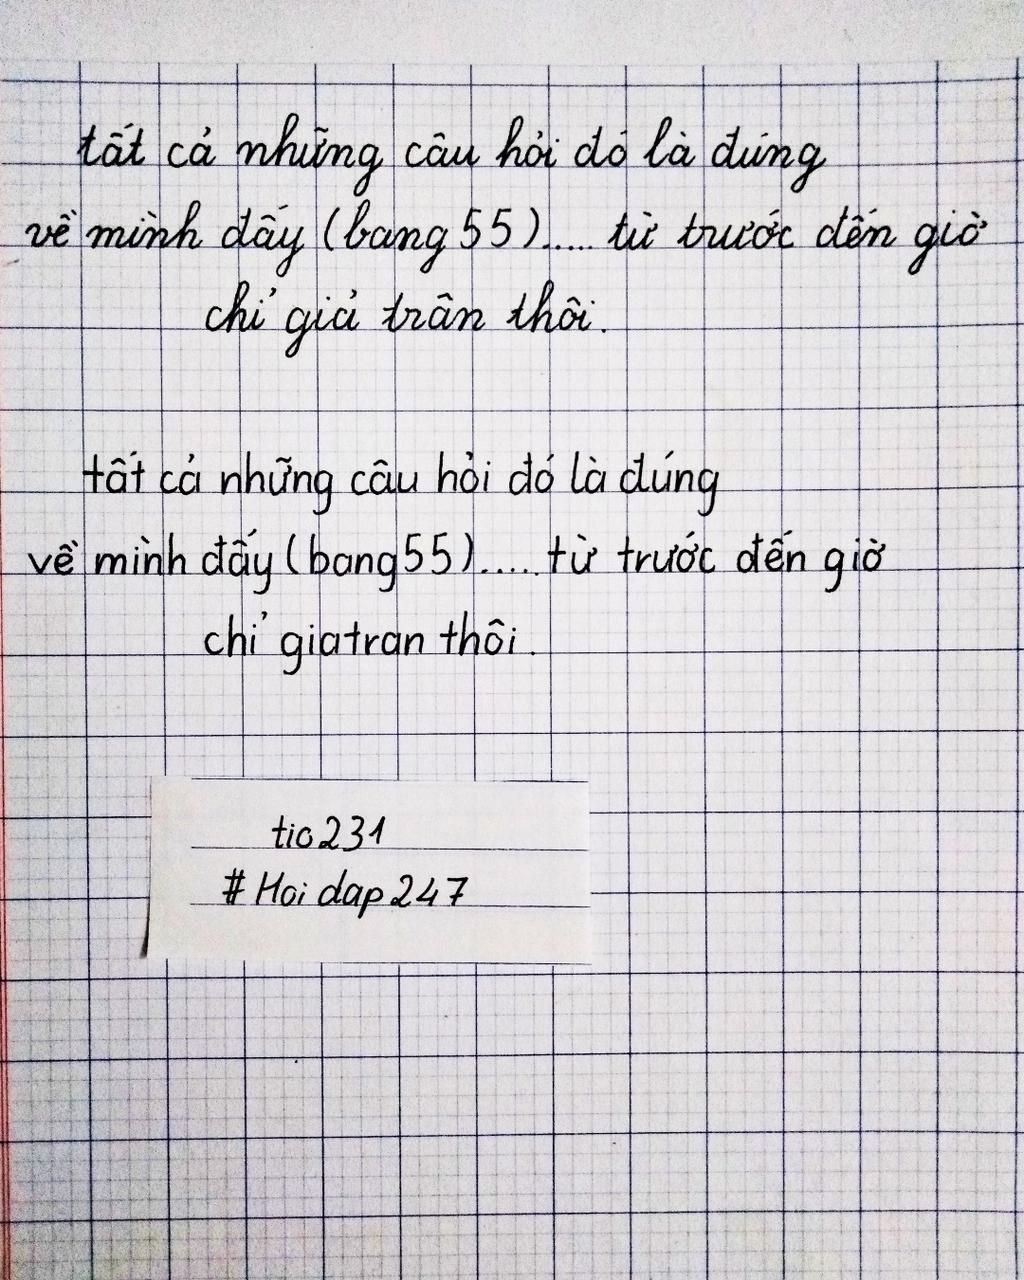 tất cả những câu hỏi đó là đúng
về mình đấy (bang 55)..... từ trước đến giờ
chỉ giả trân thôi.
tất cả những câu hỏi đó là đúng
về mình đấy (bang 55)..... từ trước đến giờ
chỉ giatran thôi.
tio231
# Hoi dap 247